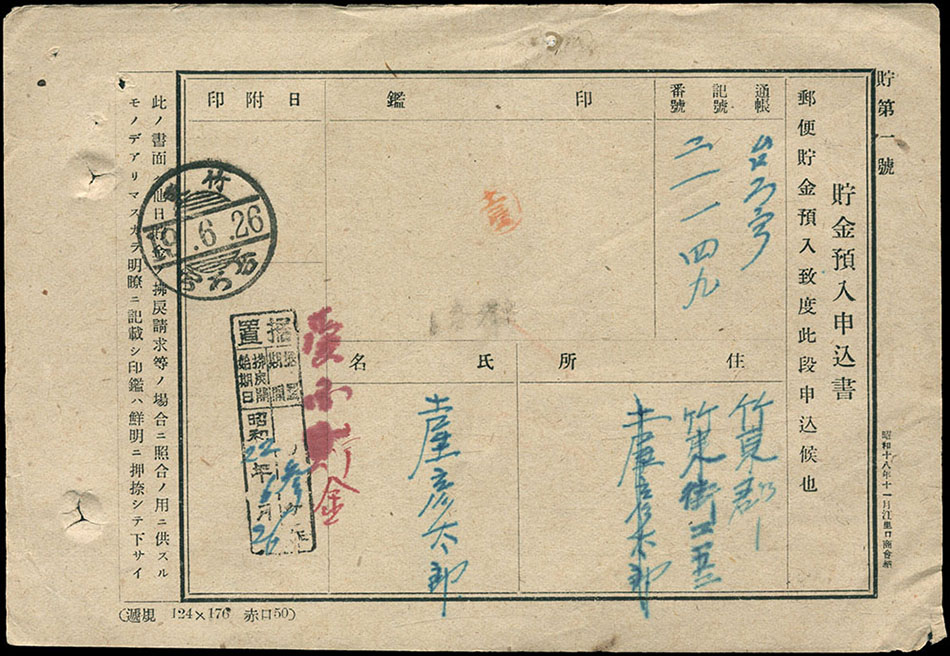 貯第一號
貯金預入申込書
郵便貯金預入致度此段申込候也
昭和十八年十一月江里口商會納
通帳
記號
番號
二一一四九
印鑑
日附印
土屋
竹東
19.6.26
台湾
住所
竹東郡
竹東街
土屋彦太郎
氏名
土屋彦太郎
愛國貯金
据置
据置
期間
拂戻開
始期日
昭和22年6月26
此ノ書面ハ他日貯金ノ拂戻請求等ノ場合ニ照合ノ用ニ供スル
モノデアリマスカラ明瞭ニ記載シ印鑑ハ鮮明ニ押捺シテ下サイ
124×176 赤口50)